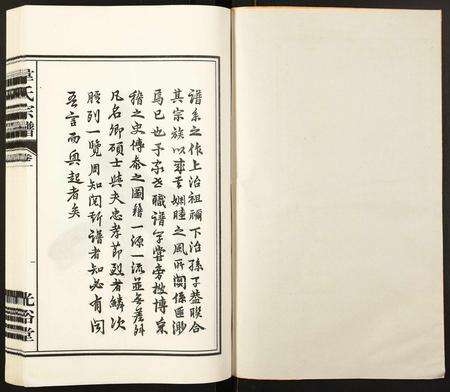 譜系之作上治祖禰下治孫子蓋聯合
其宗族以率其婣睦之風所關係匪渺
焉已也予家世職譜學嘗旁搜博采
稽之史傳參之圖籍一源一流並無差舛
凡名卿碩士與夫忠孝節烈者鱗次
臚列一覽周知閱斯譜者知必有聞
吾言而興起者矣
韋氏宗譜
卷一
光裕堂